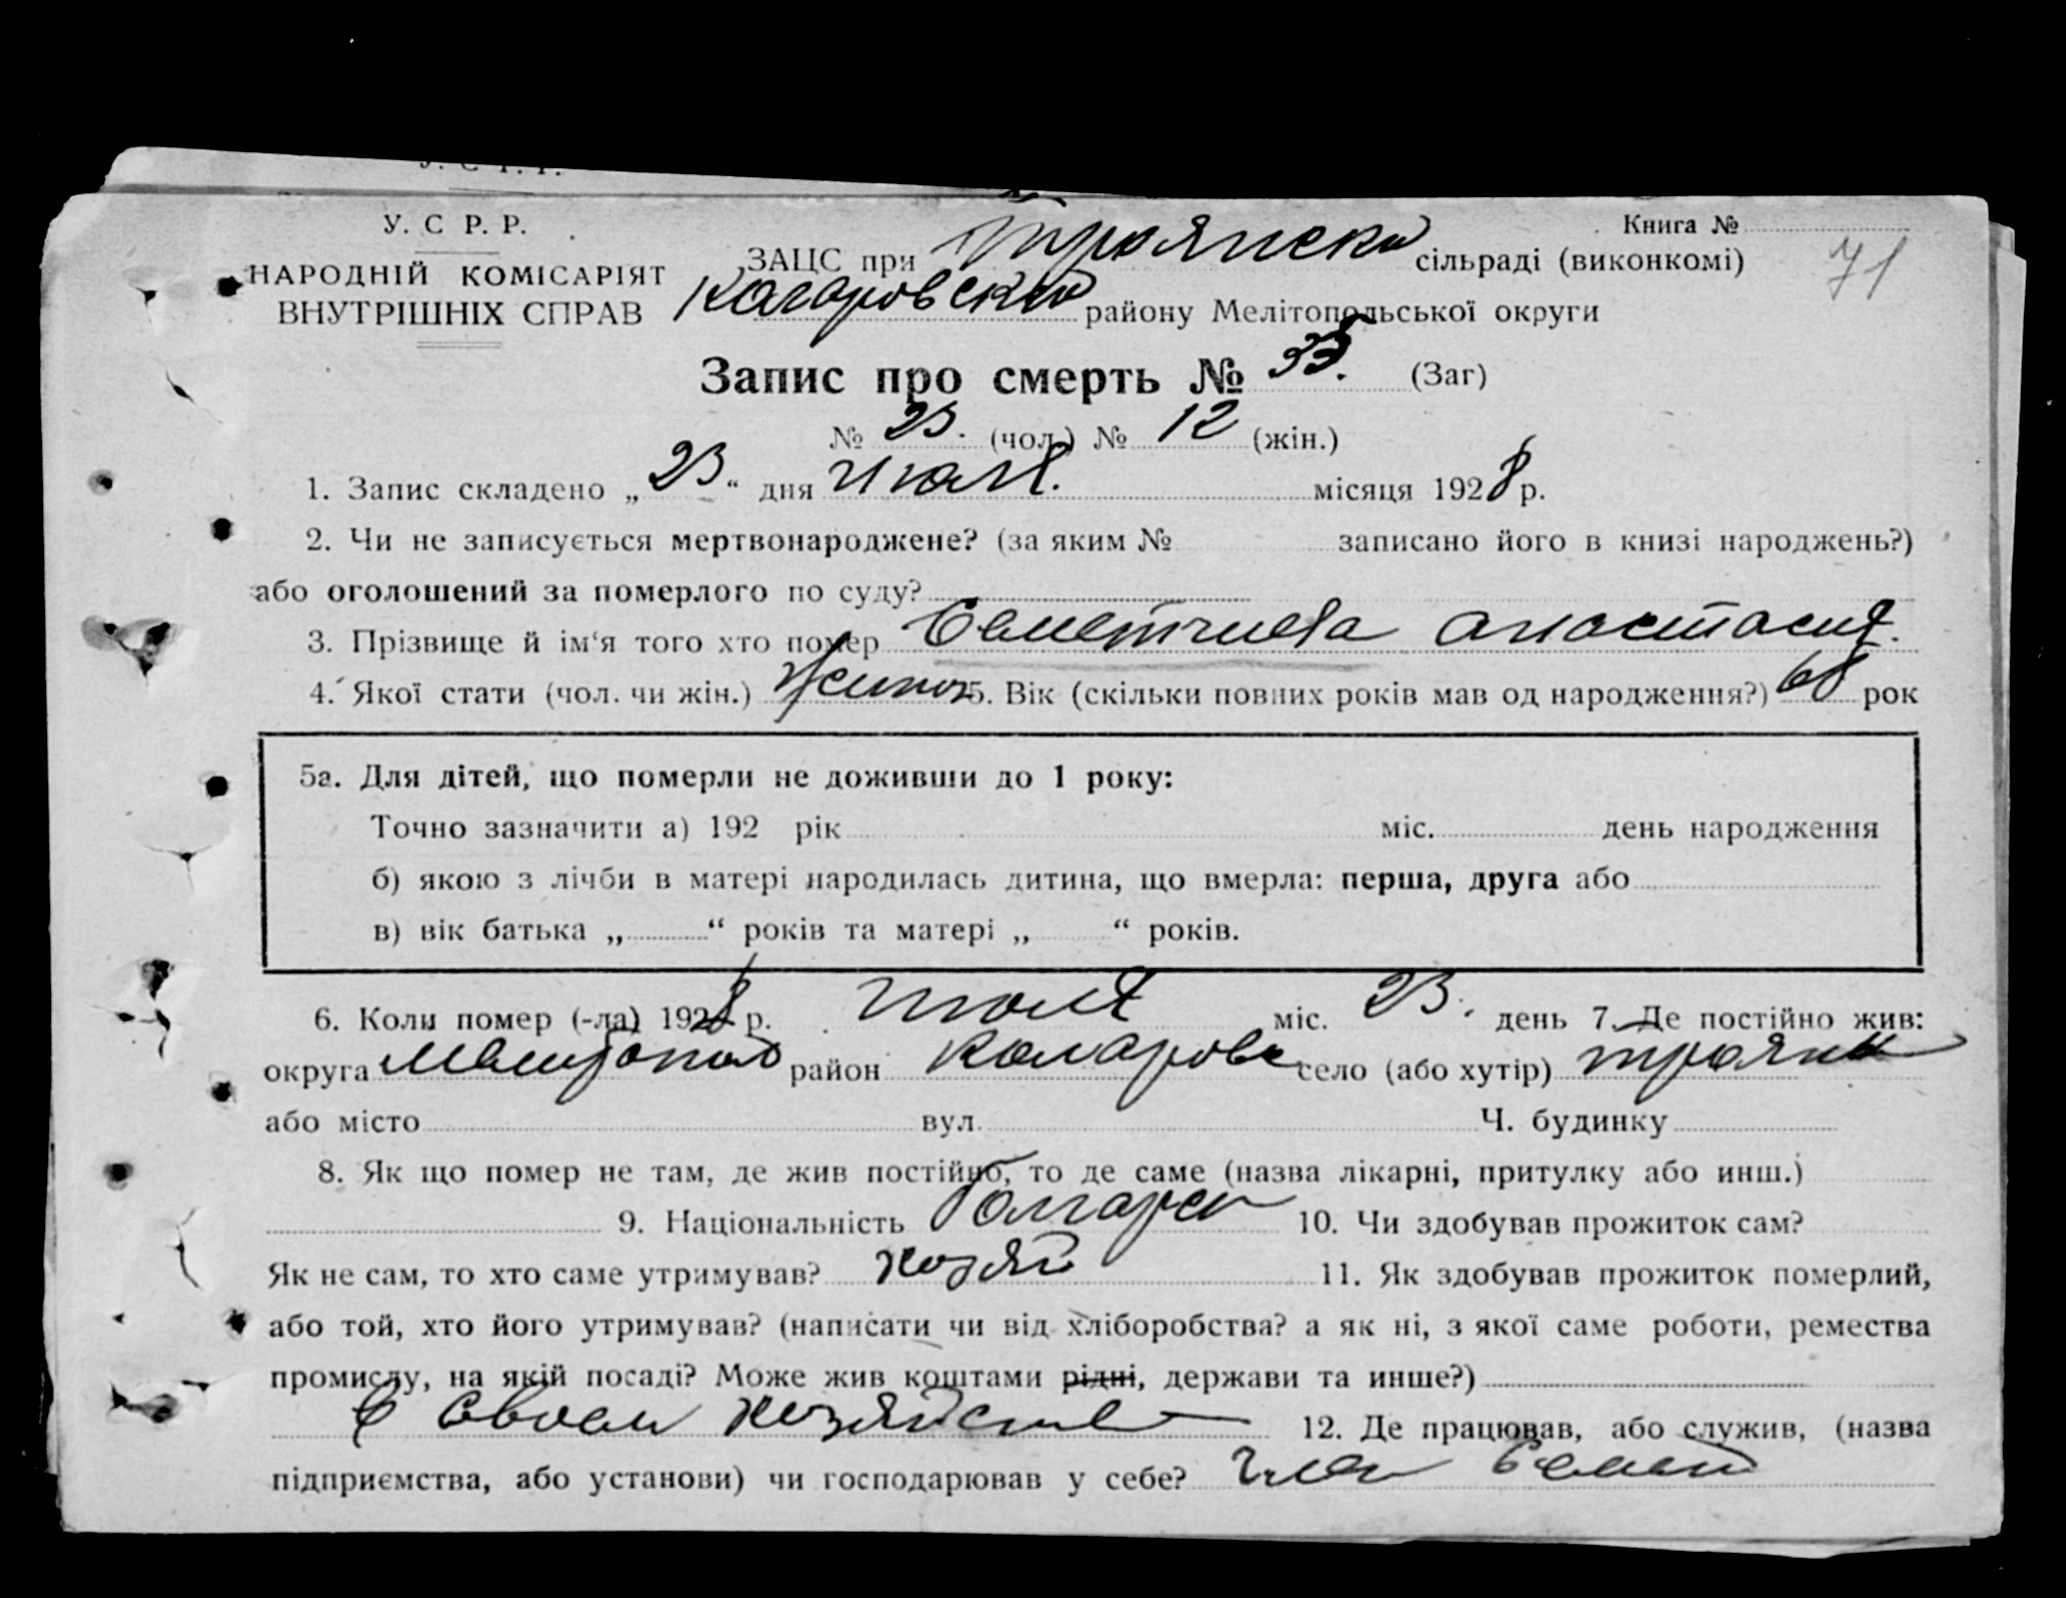 У. С Р. Р.
Книга №
71
НАРОДНІЙ КОМІСАРІЯТ
ВНУТРІШНІХ СПРАВ
ЗАЦС при Троянско сільраді (виконкомі)
району Мелітопольської округи
Запис про смерть № 35. (Заг)
№ 23. (чол.) № 12 (жін.)
1. Запис складено „23“ дня Июля. місяця 1928 р.
2. Чи не записується мертвонароджене? (за яким № записано його в книзі народжень?)
або оголошений за померлого по суду?
3. Прізвище й ім‘я того хто помер Анастасия.
4. Якої стати (чол. чи жін.) 5. Вік (скільки повних років мав од народження?) 68 рок
5а. Для дітей, що померли не доживши до 1 року:
Точно зазначити а) 192 рік міс. день народження
б) якою з лічби в матері народилась дитина, що вмерла: перша, друга або
в) вік батька „ “ років та матері „ “ років.
6. Коли помер (-ла) 1928 р. Июля міс. 23. день 7. Де постійно жив:
округа район Коларовс село (або хутір) Трояны
або місто вул. Ч. будинку
8. Як що помер не там, де жив постійно, то де саме (назва лікарні, притулку або инш.)
9. Національність 10. Чи здобував прожиток сам?
Як не сам, то хто саме утримував? хозяй 11. Як здобував прожиток померлий,
або той, хто його утримував? (написати чи від хліборобства? а як ні, з якої саме роботи, ремества
промислу, на якій посаді? Може жив коштами рідні, держави та инше?)
в своем хозяйстве 12. Де працював, або служив, (назва
підприємства, або установи) чи господарював у себе? член семьи